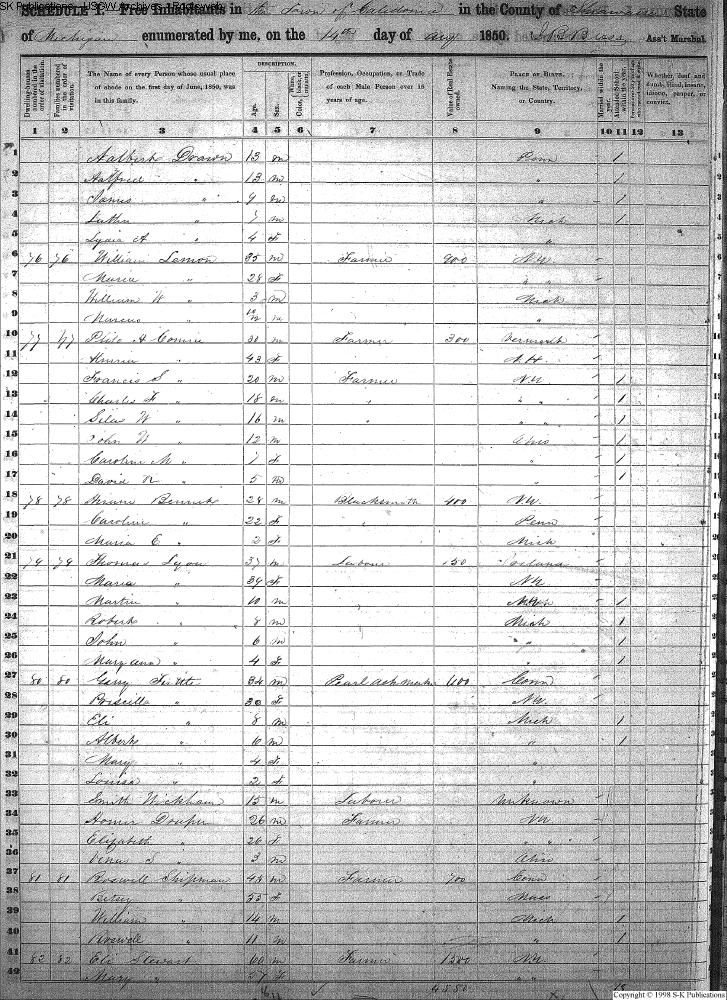 SK Publications - USGW Archives - Rootsweb
SCHEDULE I. Free Inhabitants in the Town of Caledonia in the County of Shiawassee State
of Michigan enumerated by me, on the 14th day of Aug 1850. Ass't Marshal.
DESCRIPTION.
Dwelling-houses numbered in the order of visitation. Families numbered in the order of visitation. The Name of every Person whose usual place of abode on the first day of June, 1850, was in this family. Age. Sex. Color, Profession, Occupation, or Trade of each Male Person over 15 years of age. Value of Real Estate owned. PLACE OF BIRTH. Naming the State, Territory, or Country. Married within the year. Attended School within the year. Whether deaf and dumb, blind, insane, idiotic, pauper, or convict.
1 2 3 4 5 6 7 8 9 10 11 12 13
1 13 m Penn 1
2 Aalfred " 13 m " 1
3 James " 9 m " 1
4 Luther " 7 m Mich 1
5 Lydia A " 4 f "
6 76 76 William Lemon 35 m Farmer 900 N.Y.
7 Maria " 28 f " "
8 William W " 3 m Mich
9 "
10 77 77 Philo A 30 m Farmer 300 Vermont
11 " 43 f N.H.
12 Francis S " 20 m Farmer N.Y. 1
13 Charles F " 18 m " " " 1
14 Silas W " 16 m " " " 1
15 John W " 12 m Ohio 1
16 Caroline M " 7 f " 1
17 David R " 5 m " 1
18 78 78 Hiram Bennett 28 m Blacksmith 400 N.Y.
19 Caroline " 22 f Penn
20 Maria E " 2 f Mich
21 79 79 Thomas Lyon 37 m Labour 150
22 Maria " 34 f N.Y.
23 Martin " 10 m 1
24 Robert " 8 m Mich 1
25 John " 6 m " " 1
26 Mary Ann " 4 f " 1
27 80 80 Garry 34 m Pearl ash maker 600 Conn
28 Priscilla " 30 f N.Y.
29 Eli " 8 m Mich 1
30 Albert " 10 m " 1
31 Mary " 4 f "
32 Louisa " 2 f "
33 Smith Wickham 15 m Labourer Unknown
34 Homer 26 m Farmer N.Y.
35 Elizabeth " 26 f " "
36 S " 3 m Ohio
37 81 81 Roswell Shipman 45 m Farmer 700 Conn
38 Betsey " 55 f Mass
39 William " 14 m Mich 1
40 Roswell " 11 m " 1
41 82 82 Eli Stewart 60 m Farmer 1300 N.Y.
42 Mary " 57 f " "
4850 18
Copyright © 1998 S-K Publications